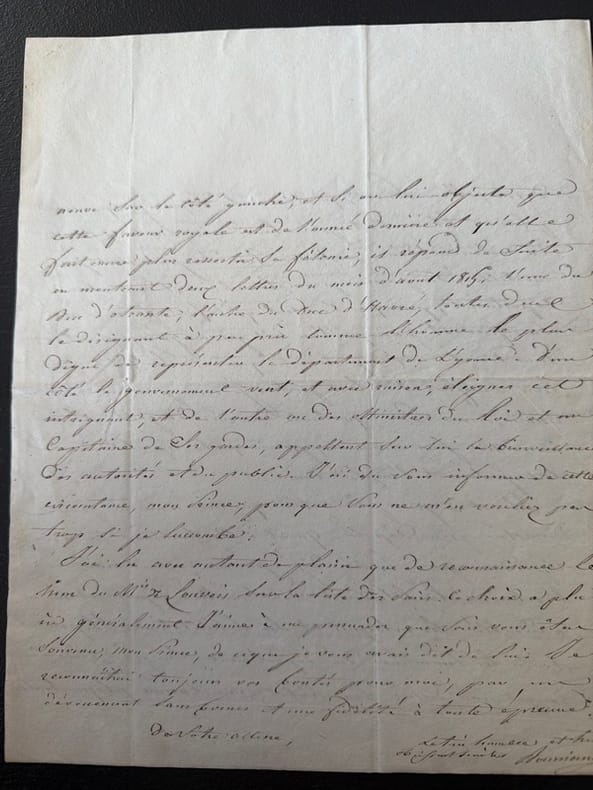 sur le côté gauche; et si on lui objecte que
cette faveur royale est de l'année dernière et qu'elle
fait encore plus ressortir sa félonie, il répond de suite
en montrant deux lettres du mois d'août 1815; l'une du
Duc d'otrante, l'autre du Duc d'Havré, toutes deux
le désignant à peu près comme l'homme le plus
digne de représenter le département de L'yonne. D'un
côté le gouvernement veut, et avec raison, éloigner cet
intrigant, et de l'autre un des Ministres du Roi et un
Capitaine de ses gardes, appellent sur lui la bienveillance
des autorités et du public. J'ai du vous informer de cette
circonstance, mon Prince, pour que vous ne m'en vouliez pas
trop si je succombe.
J'ai lu avec autant de plaisir que de reconnaissance le
nom du Mis de Louvois, sur la liste des Pairs. Ce choix a plu
ici généralement. J'aime à me persuader que vous vous êtes
souvenu, mon Prince, de ce que je vous avais dit de lui. Je
reconnaîtrai toujours vos bontés pour moi, par un
dévouement sans bornes et une fidélité à toute épreuve.
De Votre altesse,
Le très humble et très
obéissant serviteur